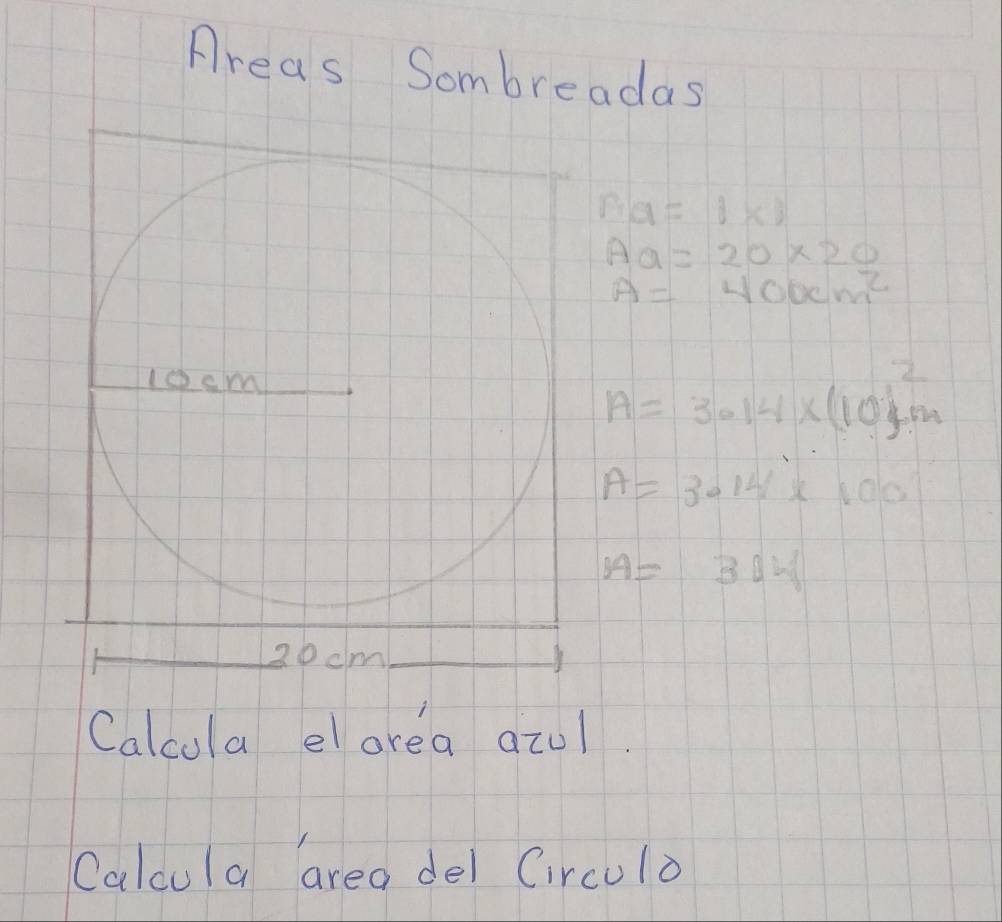 Areas Sombreadas
Aa = l x l
Aa = 20 x 20
A = 400cm²
10 cm
A = 3.14 x (10)²
A = 3.14 x 100
A = 314
20 cm
Calcula el aréa azul.
Calcula área del Circulo